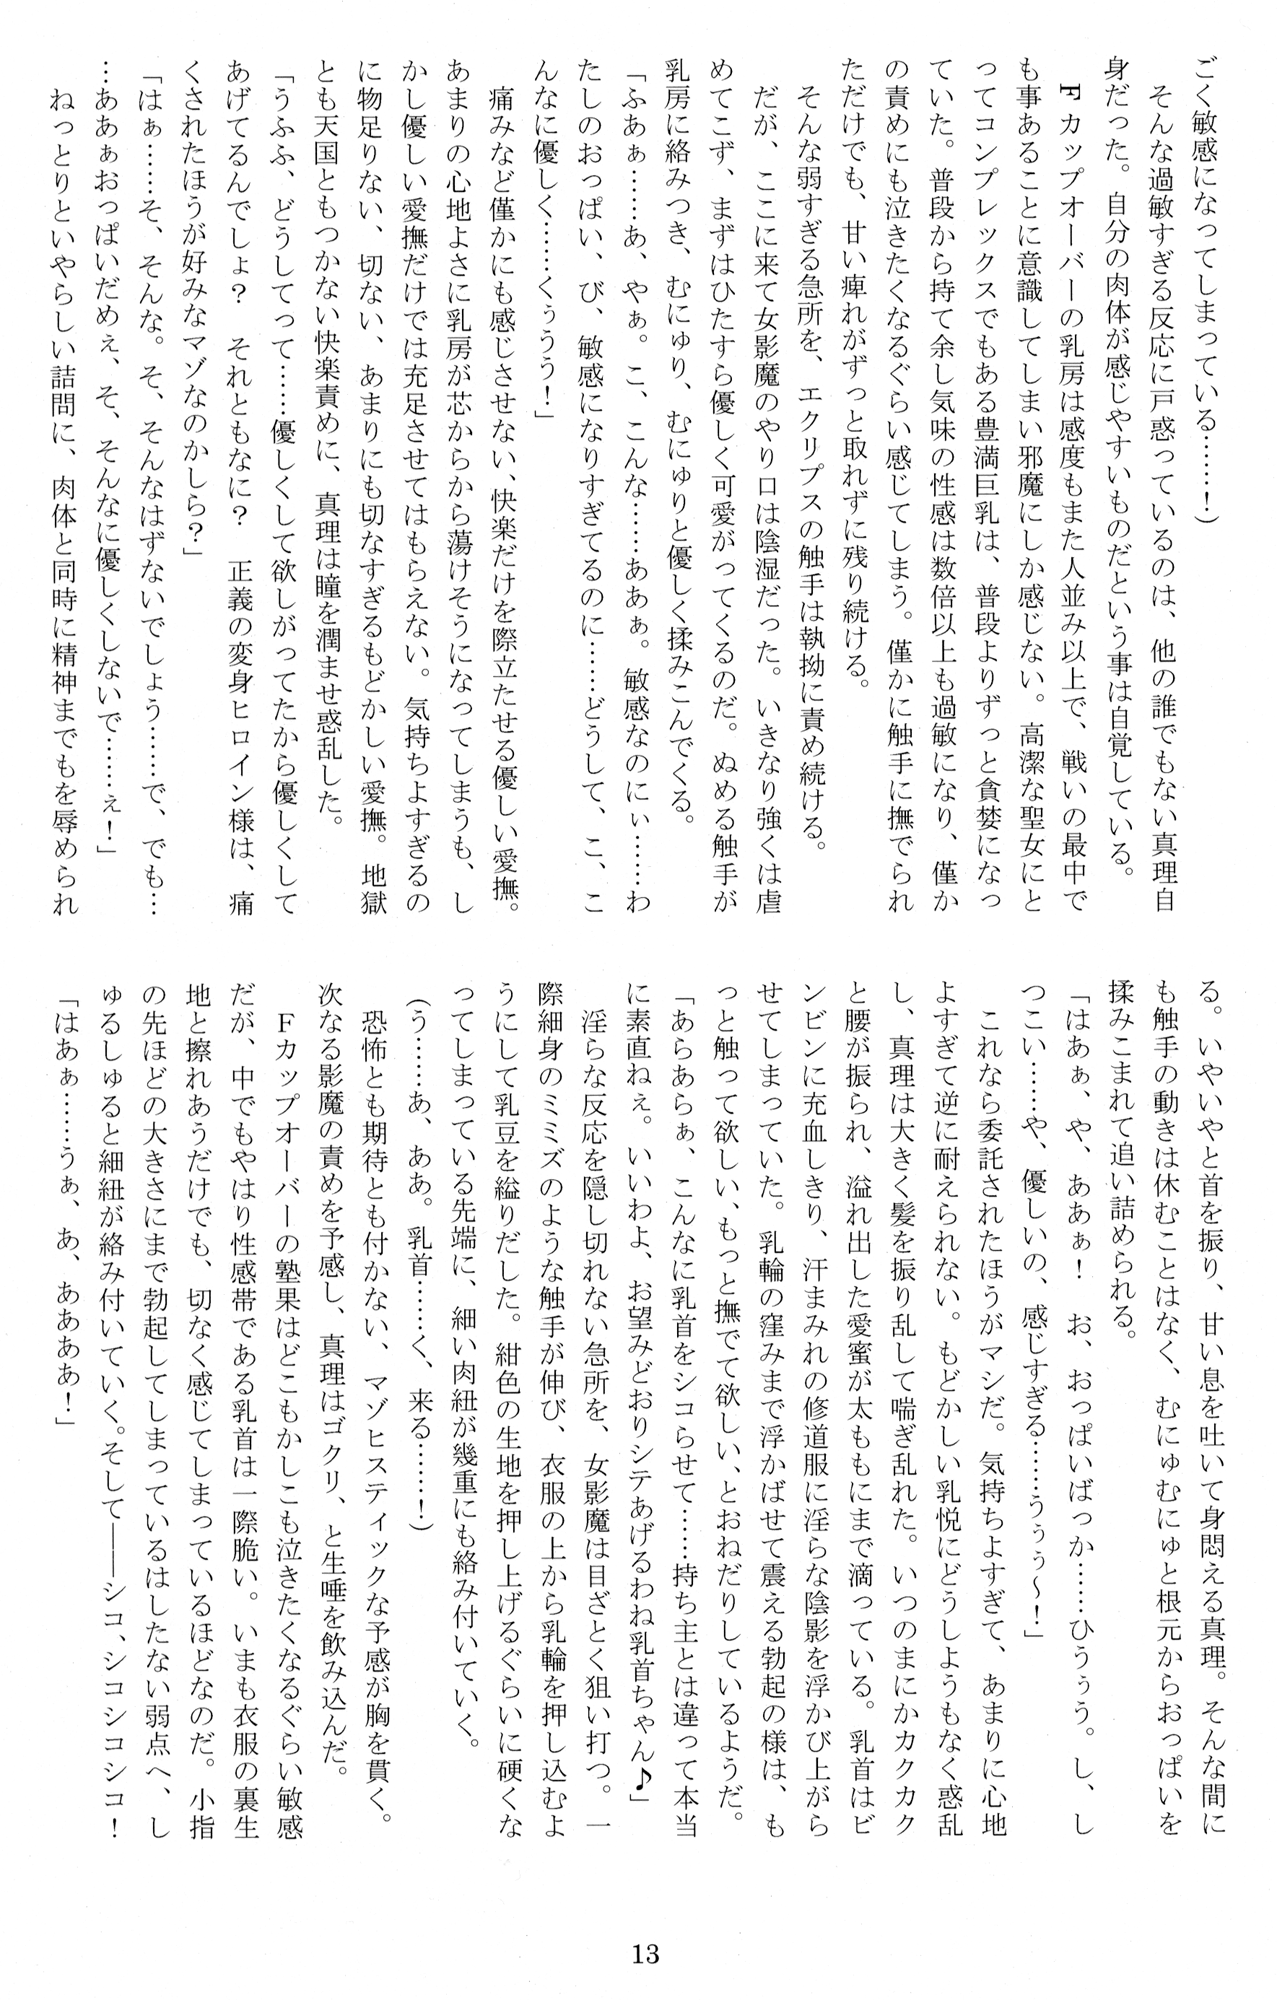 ごく敏感になってしまっている……！）
　そんな過敏すぎる反応に戸惑っているのは、他の誰でもない真理自
身だった。自分の肉体が感じやすいものだという事は自覚している。
　Ｆカップオーバーの乳房は感度もまた人並み以上で、戦いの最中で
も事あることに意識してしまい邪魔にしか感じない。高潔な聖女にと
ってコンプレックスでもある豊満巨乳は、普段よりずっと貪婪になっ
ていた。普段から持て余し気味の性感は数倍以上も過敏になり、僅か
の責めにも泣きたくなるぐらい感じてしまう。僅かに触手に撫でられ
ただけでも、甘い痺れがずっと取れずに残り続ける。
　そんな弱すぎる急所を、エクリプスの触手は執拗に責め続ける。
　だが、ここに来て女影魔のやり口は陰湿だった。いきなり強くは虐
めてこず、まずはひたすら優しく可愛がってくるのだ。ぬめる触手が
乳房に絡みつき、むにゅり、むにゅりと優しく揉みこんでくる。
「ふあぁ……あ、やぁ。こ、こんな……ああぁ。敏感なのにぃ……わ
たしのおっぱい、び、敏感になりすぎてるのに……どうして、こ、こ
んなに優しく……くぅうう！」
　痛みなど僅かにも感じさせない、快楽だけを際立たせる優しい愛撫。
あまりの心地よさに乳房が芯からから蕩けそうになってしまうも、し
かし優しい愛撫だけでは充足させてはもらえない。気持ちよすぎるの
に物足りない、切ない、あまりにも切なすぎるもどかしい愛撫。地獄
とも天国ともつかない快楽責めに、真理は瞳を潤ませ惑乱した。
「うふふ、どうしてって……優しくして欲しがってたから優しくして
あげてるんでしょ？　それともなに？　正義の変身ヒロイン様は、痛
くされたほうが好みなマゾなのかしら？」
「はぁ……そ、そんな。そ、そんなはずないでしょう……で、でも…
…ああぁおっぱいだめぇ、そ、そんなに優しくしないで……ぇ！」
　ねっとりといやらしい詰問に、肉体と同時に精神までもを辱められ
る。いやいやと首を振り、甘い息を吐いて身悶える真理。そんな間に
も触手の動きは休むことはなく、むにゅむにゅと根元からおっぱいを
揉みこまれて追い詰められる。
「はあぁ、や、ああぁ！　お、おっぱいばっか……ひうぅう。し、し
つこい……や、優しいの、感じすぎる……うぅぅ～！」
　これなら委託されたほうがマシだ。気持ちよすぎて、あまりに心地
よすぎて逆に耐えられない。もどかしい乳悦にどうしようもなく惑乱
し、真理は大きく髪を振り乱して喘ぎ乱れた。いつのまにかカクカク
と腰が振られ、溢れ出した愛蜜が太ももにまで滴っている。乳首はビ
ンビンに充血しきり、汗まみれの修道服に淫らな陰影を浮かび上がら
せてしまっていた。乳輪の窪みまで浮かばせて震える勃起の様は、も
っと触って欲しい、もっと撫でて欲しい、とおねだりしているようだ。
「あらあらぁ、こんなに乳首をシコらせて……持ち主とは違って本当
に素直ねぇ。いいわよ、お望みどおりシテあげるわね乳首ちゃん♪」
　淫らな反応を隠し切れない急所を、女影魔は目ざとく狙い打つ。一
際細身のミミズのような触手が伸び、衣服の上から乳輪を押し込むよ
うにして乳豆を縊りだした。紺色の生地を押し上げるぐらいに硬くな
ってしまっている先端に、細い肉紐が幾重にも絡み付いていく。
（う……あ、ああ。乳首……く、来る……！）
　恐怖とも期待とも付かない、マゾヒスティックな予感が胸を貫く。
次なる影魔の責めを予感し、真理はゴクリ、と生唾を飲み込んだ。
　Ｆカップオーバーの塾果はどこもかしこも泣きたくなるぐらい敏感
だが、中でもやはり性感帯である乳首は一際脆い。いまも衣服の裏生
地と擦れあうだけでも、切なく感じてしまっているほどなのだ。小指
の先ほどの大きさにまで勃起してしまっているはしたない弱点へ、し
ゅるしゅると細紐が絡み付いていく。そして――シコ、シコシコシコ！
「はあぁ……うぁ、あ、ああああ！」
13